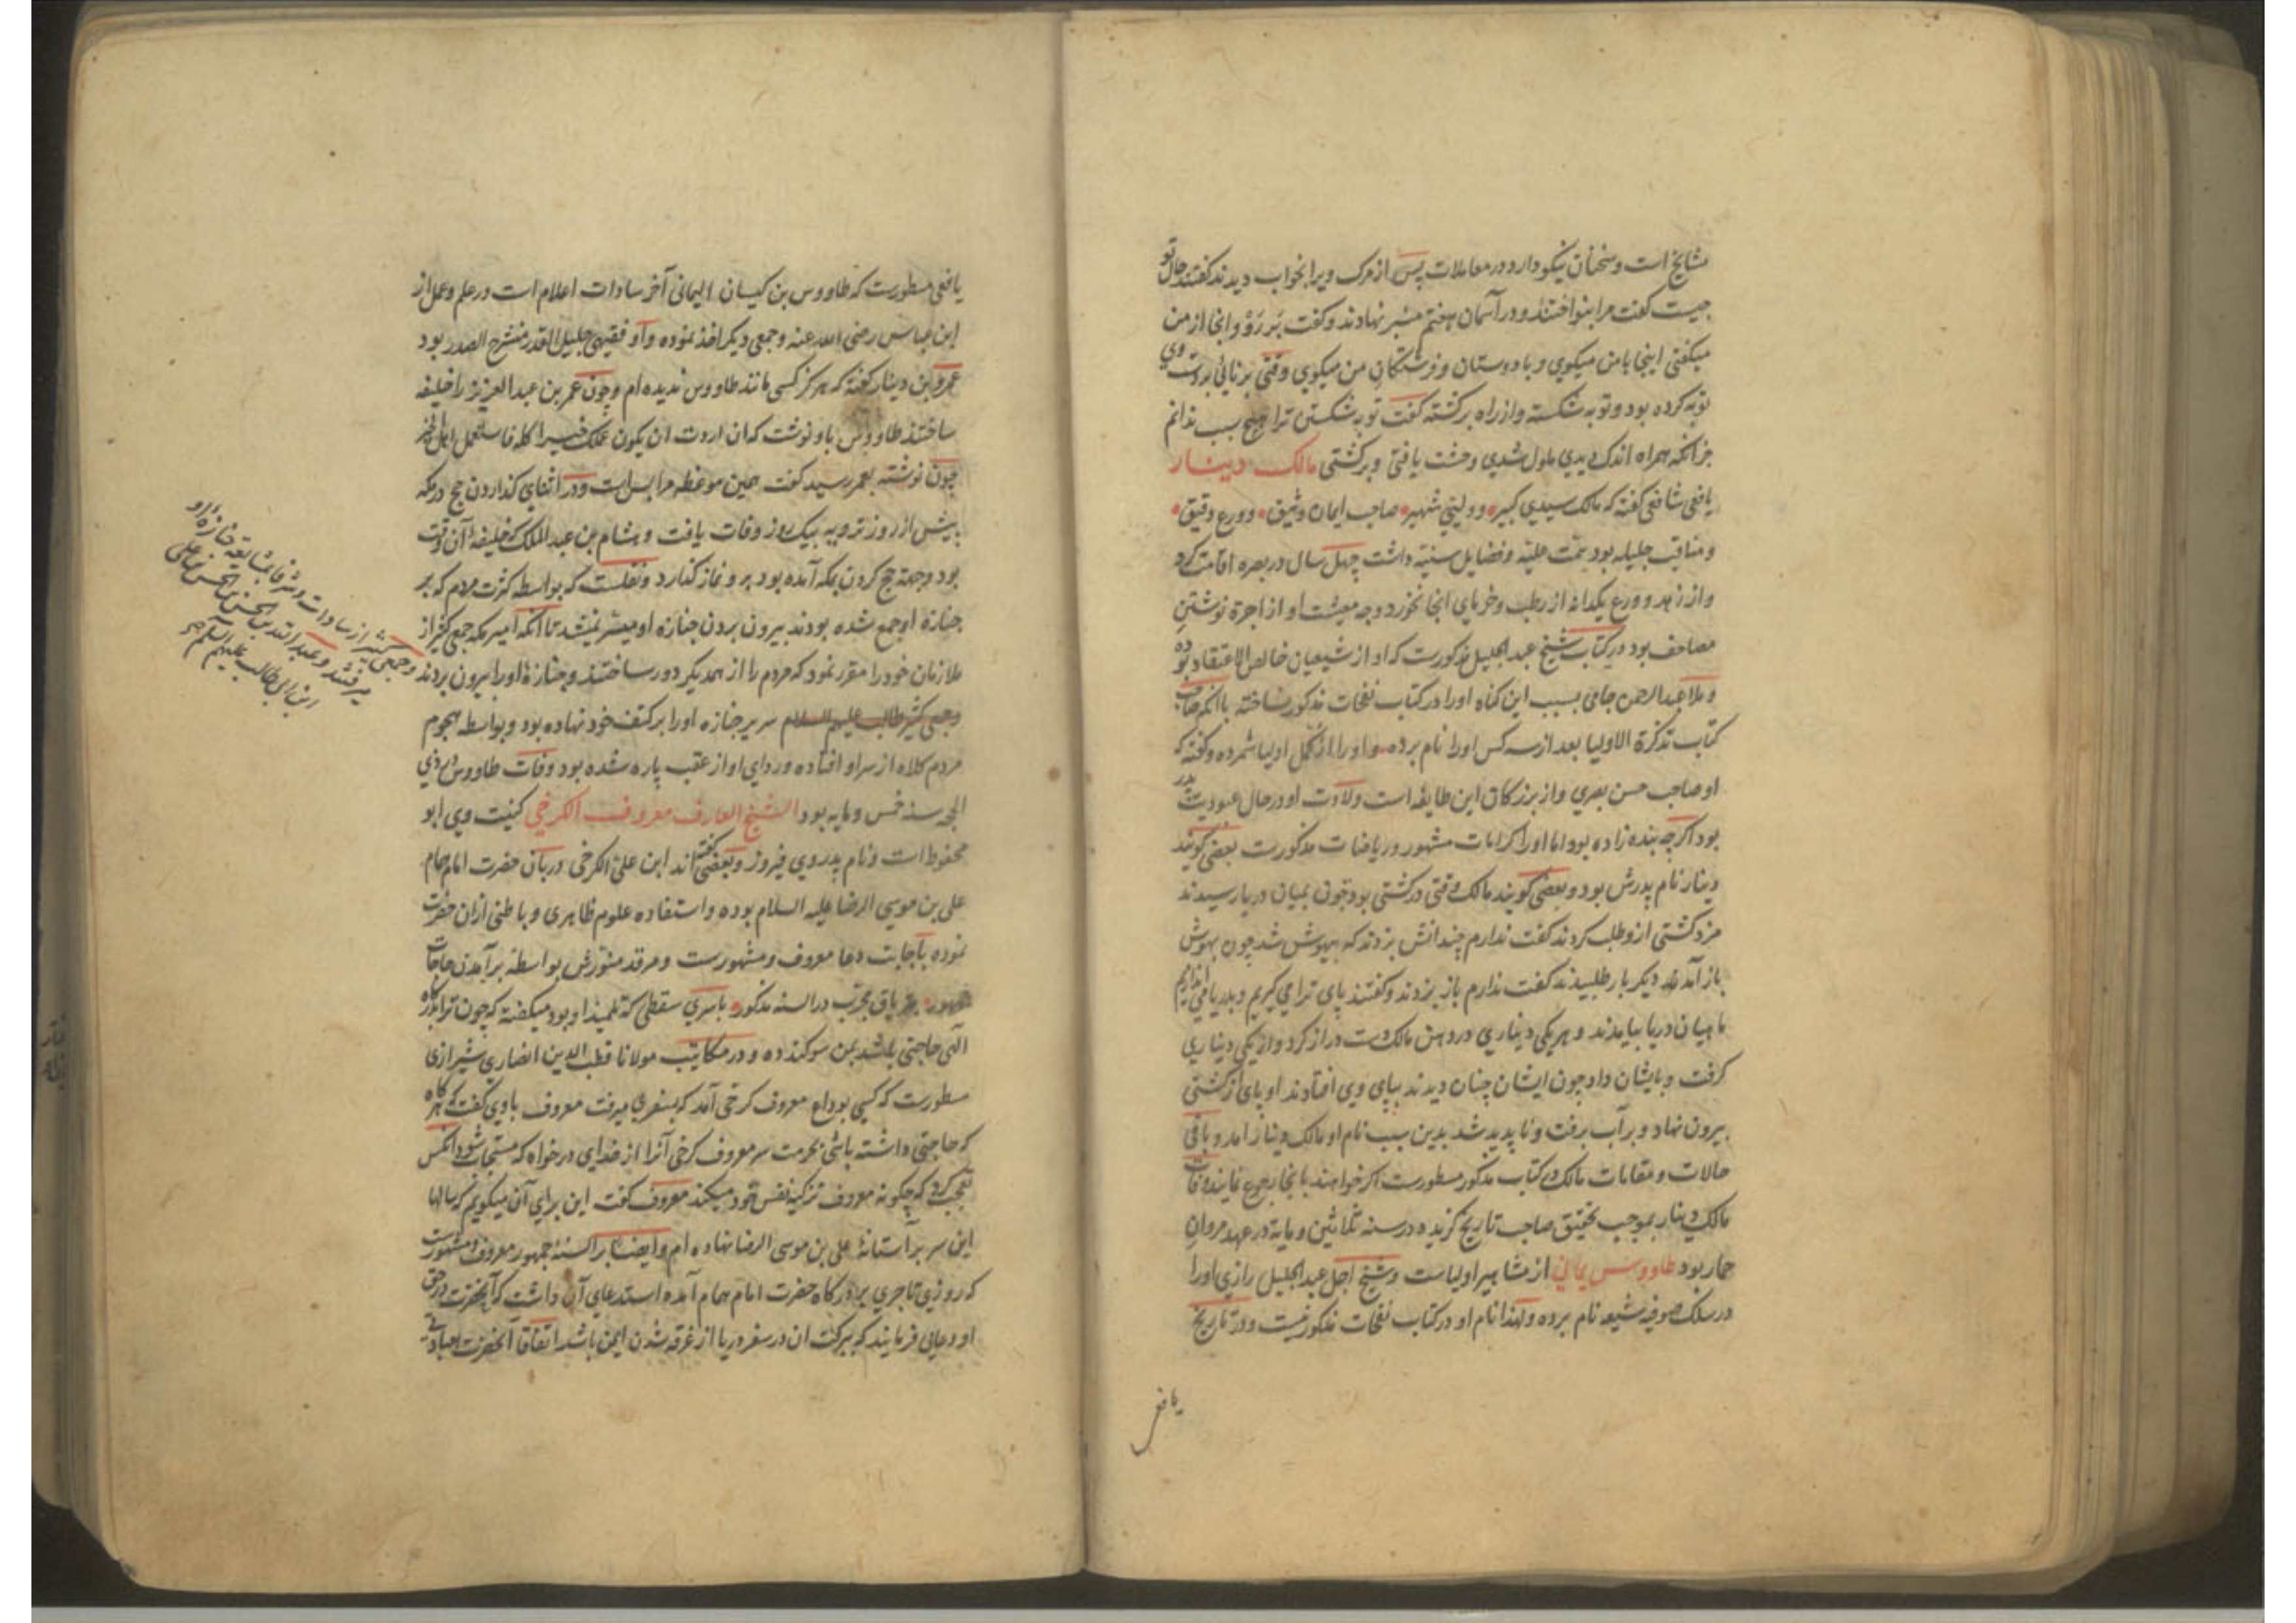 مشایخ است و سخنان نیکو دارد در معاملات پس از مرک ویرا بخواب دیدند کفتند حال تو
چیست کفت مرا بنواختند و در آسمان هفتم منبر نهادند و کفت بر رو و انجا از من
میکفتی اینجا با من میکوی و با دوستان و فرشتکان من میکوی وقتی برنائی بر دست وی
توبه کرده بود و توبه شکسته و از راه برکشته کفت توبه شکستن ترا هیچ سبب ندانم
جز انکه همراه اندک دیدی ملول شدی وحشت یافتی و برکشتی مالک دینار
یافعی شافعی کفته که مالک سیدی کبیر و ولیی شهیر صاحب ایمان وثیق و ورع دقیق
و مناقب جلیله بود همت علیه و فضایل سنیه داشت چهل سال در بصره اقامت کرد
و از زهد و ورع یکدانه از رطب و خرمای انجا نخورد وجه معیشت او از اجرة نوشتن
مصاحف بود در کتاب شیخ عبد الجلیل مذکورست که او از شیعیان خالص الاعتقاد بوده
و ملا عبد الرحمن جامی بسبب این کناه اورا در کتاب نفحات مذکور نساخته با انکه صاحب
کتاب تذکرة الاولیا بعد از سه کس اورا نام برده و اورا از کمل اولیا شمرده و کفته که
او صاحب حسن بصری و از بزرکان این طایفه است ولادت او در حال عبودیت پدر
بود اکرچه بنده زاده بود اما اورا کرامات مشهور و ریاضات مذکورست بعضی کویند
دینار نام پدرش بود و بعضی کویند مالک وقتی در کشتی بود چون بمیان دریا رسیدند
مزد کشتی ازو طلب کردند کفت ندارم چندانش بزدند که بیهوش شد چون بهوش
باز آمد دیکر بار طلبیدند کفت ندارم باز بزدند و کفتند پای ترا می کیریم و بدریا می اندازیم
ماهیان دریا بیامدند و هر یکی دیناری در دهن مالک دست دراز کرد و از یکی دیناری
کرفت و بایشان داد چون ایشان چنان دیدند بپای وی افتادند او پای از کشتی
بیرون نهاد و بر آب برفت و ناپدید شد بدین سبب نام او مالک دینار امد و باقی
حالات و مقامات مالک در کتاب مذکور مسطورست اکر خواهند بانجا رجوع نمایند وفات
مالک دینار بموجب تحقیق صاحب تاریخ کزیده در سنه ثلاثین و مایة در عهد مروان
حمار بود طاووس یمانی از مشاهیر اولیاست و شیخ اجل عبد الجلیل رازی اورا
در سلک صوفیه شیعه نام برده و لهذا نام او در کتاب نفحات مذکور نیست و در تاریخ
یافعی
یافعی مسطورست که طاووس بن کیسان الیمانی آخر سادات اعلام است در علم و عمل از
ابن عباس رضی الله عنه و جمعی دیکر اخذ نموده و او فقیهی جلیل القدر منشرح الصدر بود
عمرو بن دینار کفته که هرکز کسی مانند طاووس ندیده ام و چون عمر بن عبد العزیز را خلیفه
ساختند طاووس باو نوشت که ان اردت ان یکون عملک خیرا کله فاستعمل اهل الخیر
چون نوشته بعمر رسید کفت همین موعظه مرا بس است و در اثنای کذاردن حج در مکه
پیش از روز ترویه بیک روز وفات یافت و هشام بن عبد الملک که خلیفه آن وقت
بود و جهة حج کردن بمکه آمده بود برو نماز کذارد و نقلست که بواسطه کثرت مردم که بر
جنازه او جمع شده بودند بیرون بردن جنازه او میسر نمیشد تا انکه امیر مکه جمع کثیر از
ملازمان خود را مقرر نمود که مردم را از همدیکر دور ساختند و جنازه اورا بیرون بردند
و جمعی کثیر از سادات و شرفا بمشایعه جنازه او
میرفتند و عبد الله بن الحسن بن الحسن بن علی
ابن ابی طالب علیهم السلم
وجمعی کثیر طالب علیهم السلام سریر جنازه اورا بر کتف خود نهاده بود و بواسطه هجوم
مردم کلاه از سر او افتاده و ردای او از عقب پاره شده بود وفات طاووس در ذی
الحجه سنه خمس و مایه بود الشیخ العارف معروف الکرخی کنیت وی ابو
محفوظ است و نام پدر وی فیروز و بعضی کفته اند ابن علی الکرخی دربان حضرت امام همام
علی بن موسی الرضا علیه السلام بوده و استفاده علوم ظاهری و باطنی ازان حضرت
نموده باجابت دعا معروف و مشهورست و مرقد منورش بواسطه برآمدن حاجات
بتریاق مجرب در السنه مذکور با سری سقطی که تلمیذ او بود میکفته که چون ترا بدرکاه
الهی حاجتی باشد بمن سوکند ده و در مکاتیب مولانا قطب الدین انصاری شیرازی
مسطورست که کسی بوداع معروف کرخی آمد که بسفر می میرفت معروف باوی کفت که هرکاه
که حاجتی داشته باشی بحرمت سر معروف کرخی آنرا از خدای درخواه که مستجاب شود انکس
تعجب کرد که چکونه معروف تزکیه نفس خود میکند معروف کفت این برای آن میکویم که سالها
این سر بر آستانهٔ علی بن موسی الرضا نهاده ام و ایضا بر السنهٔ جمهور معروف و مشهورست
که روزی تاجری بدرکاه حضرت امام همام آمده استدعای آن داشت که آنحضرت در حق
او دعایی فرمایند که ببرکت ان در سفر دریا از غرقه شدن ایمن باشد اتفاقا آنحضرت